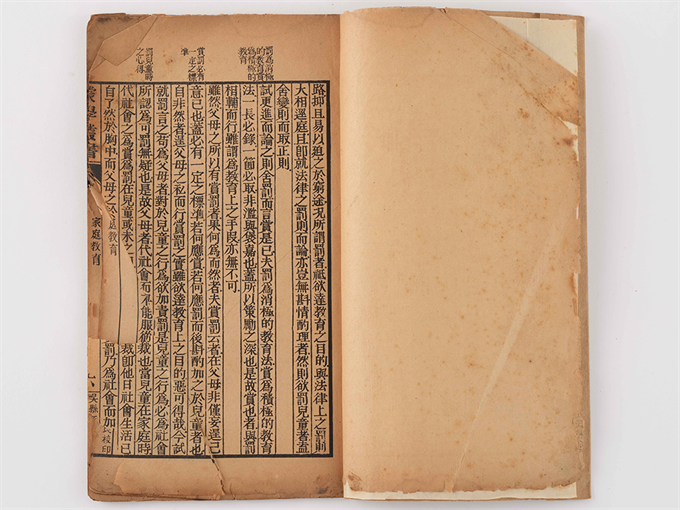 路抑且易以迫之於窮途況所謂罰者祗欲達教育之目的與法律上之罰則
大相逕庭且卽就法律之罰則而論亦豈無斟情酌理者然則欲罰兒童者盍
舍變則而取正則
罰爲消極的教育賞爲積極的教育
試更進而論之則舍罰而言賞是已夫罰爲消極的教育法賞爲積極的教育
法一長必錄一節必取非濫與獎嘉也蓋所以策勵之深也是故賞也者與罰
相輔而行雖謂爲教育上之手段亦無不可
賞罰必有一定之標準
雖然父母之所以有賞罰者果何爲而然者夫賞罰云者在父母非僅妄逞己
意已也蓋必有一定之標準若何應賞若何應罰而後斟酌加之於兒童者也
自非然者逞父母之私而行賞罰之實雖欲達教育上之目的惡可得哉今試
罰兒童時之心得
就罰言之苟爲父母者對於兒童之行爲欲加責罰是兒童之行爲必爲社會
所認爲可罰無疑也是故父母者代社會而不能服務裁也當兒童在家庭時
代社會之爲賞爲罰在兒童或未之 裁卽他日社會生活已
自了然於胸中而父母之於 罰乃爲社會而加
蒙學叢書
家庭教育
庭教育
六
校印